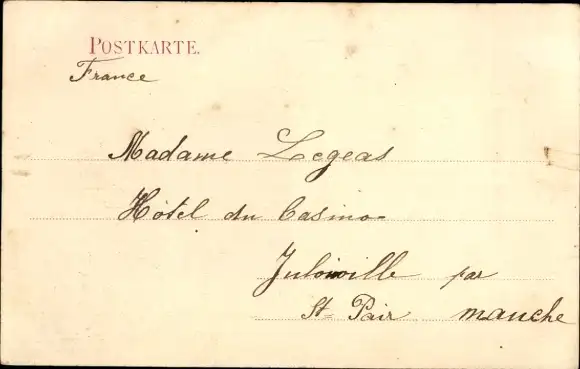 POSTKARTE.
France
Madame Legeas
Hôtel du Casino
Juloiville par
St Pair manche